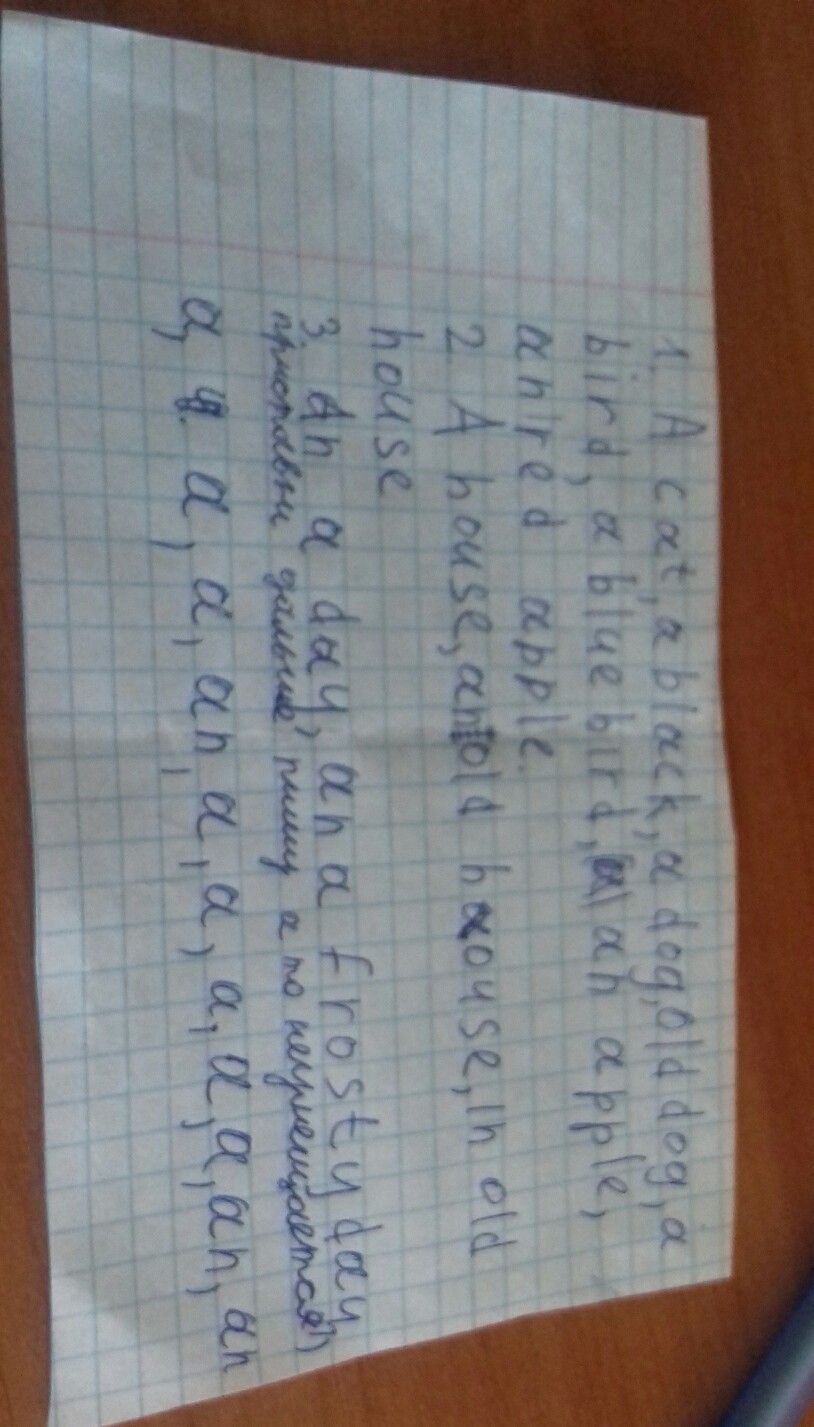 1. A cat, a black, a dog, old dog, a
bird, a blue bird, an apple,
an red apple.
2 A house, an old house, in old
house
3. An a day, an a frosty day
приставки дальше пишу а то неумещается)
a, a, a, an, a, a, a, a, a, an, an